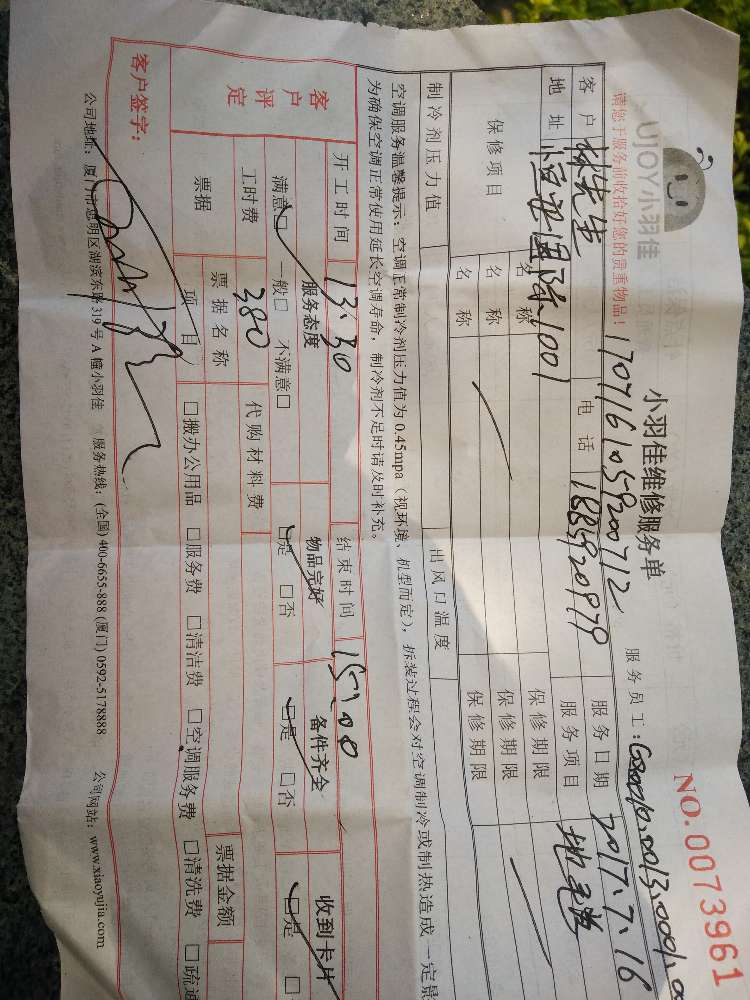 UJOY小羽佳
小羽佳维修服务单
NO.0073961
请您于服务前收拾好您的贵重物品！
170716105920712
服务员工：
客户 林先生 电话 服务日期 2017.7.16
地址 恒亚国际1001 服务项目 地毛毯
保修项目 名称 保修期限
名称 保修期限
名称 保修期限
制冷剂压力值 出风口温度
空调服务温馨提示：空调正常制冷剂压力值为0.45mpa（视环境、机型而定），拆装过程会对空调制冷或制热造成一定影
为确保空调正常使用延长空调寿命，制冷剂不足时请及时补充。
开工时间 13:30 结束时间 15:00
客户评定 服务态度 物品完好 备件齐全 收到卡片
满意□ 一般□ 不满意□ □是 □否 □是 □否 □是 □
工时费 380 代购材料费
票据 票据名称 票据金额
项目 □搬办公用品 □服务费 □清洁费 □空调服务费 □清洗费 □疏通
客户签字：
公司地址：厦门市思明区湖滨东路319号A幢小羽佳 服务热线：(全国) 400-6655-888 (厦门) 0592-5178888 公司网站：www.xiaoyujia.com